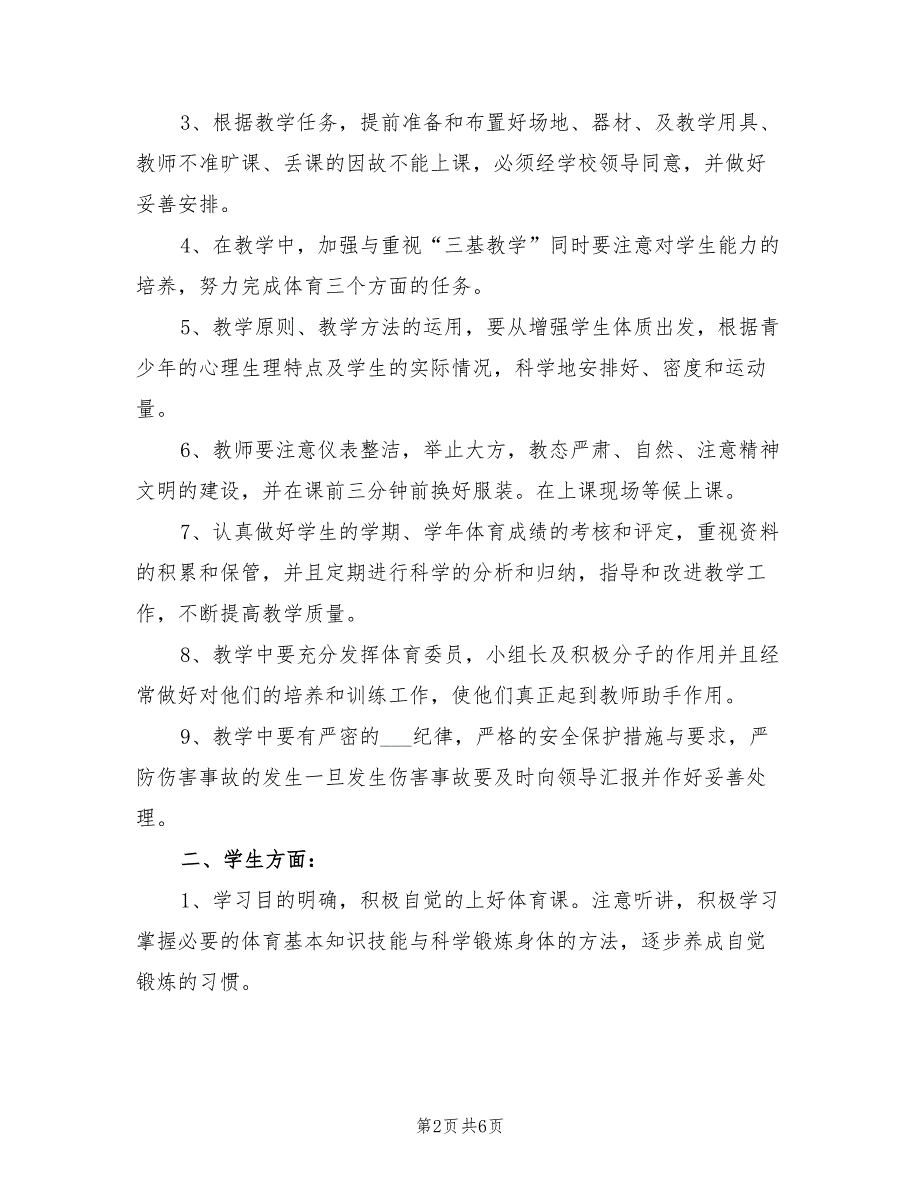 3、根据教学任务，提前准备和布置好场地、器材、及教学用具、
教师不准旷课、丢课的因故不能上课，必须经学校领导同意，并做好
妥善安排。
4、在教学中，加强与重视“三基教学”同时要注意对学生能力的
培养，努力完成体育三个方面的任务。
5、教学原则、教学方法的运用，要从增强学生体质出发，根据青
少年的心理生理特点及学生的实际情况，科学地安排好、密度和运动
量。
6、教师要注意仪表整洁，举止大方，教态严肃、自然、注意精神
文明的建设，并在课前三分钟前换好服装。在上课现场等候上课。
7、认真做好学生的学期、学年体育成绩的考核和评定，重视资料
的积累和保管，并且定期进行科学的分析和归纳，指导和改进教学工
作，不断提高教学质量。
8、教学中要充分发挥体育委员，小组长及积极分子的作用并且经
常做好对他们的培养和训练工作，使他们真正起到教师助手作用。
9、教学中要有严密的___纪律，严格的安全保护措施与要求，严
防伤害事故的发生一旦发生伤害事故要及时向领导汇报并作好妥善处
理。
二、学生方面：
1、学习目的明确，积极自觉的上好体育课。注意听讲，积极学习
掌握必要的体育基本知识技能与科学锻炼身体的方法，逐步养成自觉
锻炼的习惯。
第2页共6页